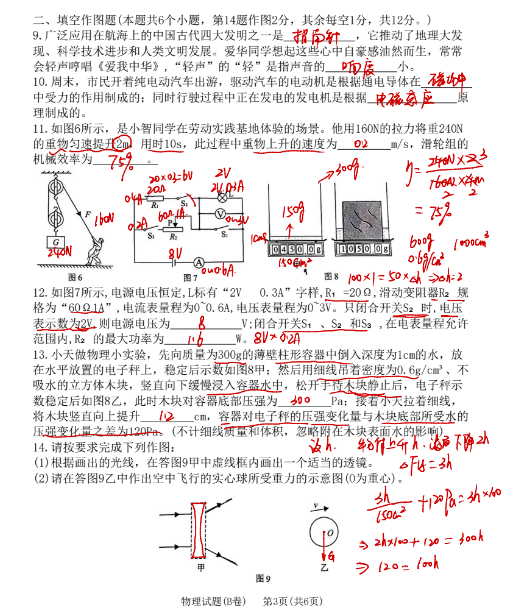 二、填空作图题(本题共6个小题，第14题作图2分，其余每空1分，共12分。)
9.广泛应用在航海上的中国古代四大发明之一是 指南针 ，它推动了地理大发
现、科学技术进步和人类文明发展。爱华同学想起这些心中自豪感油然而生，常常
会轻声哼唱《爱我中华》,“轻声”的“轻”是指声音的 响度 小。
10.周末，市民开着纯电动汽车出游，驱动汽车的电动机是根据通电导体在 磁场中
中受力的作用制成的；同时行驶过程中正在发电的发电机是根据 电磁感应 原
理制成的。
11.如图6所示，是小智同学在劳动实践基体验的场景。他用160N的拉力将重240N
的重物匀速提升2m，用时10s，此过程中重物上升的速度为 0.2 m/s，滑轮组的
机械效率为 75% 。
η=
= 75%
F
160N
G
240N
图6
20×0.3=6V
20Ω
R₁
S₁
60Ω 1A
P
S₂
R₂
8V
2V
2V 0.3A
L
V
0~3V
S₃
A
0~0.6A
图7
300g
150g
0450.0g
150cm²
0510.0g
图8
600g
1000cm³
0.6g/cm³
12.如图7所示,电源电压恒定,L标有“2V 0.3A”字样,R₁ =20Ω,滑动变阻器R₂ 规
格为“60Ω1A”,电流表量程为0~0.6A,电压表量程为0~3V。只闭合开关S₂ 时,电压
表示数为2V,则电源电压为 8 V;闭合开关S₁ 、S₂ 和S₃ ,在电表量程允许
范围内,R₂ 的最大功率为 1.6 W。 8V×0.2A
13.小天做物理小实验，先向质量为300g的薄壁柱形容器中倒入深度为1cm的水，放
在水平放置的电子秤上，稳定后示数如图8甲；然后用细线吊着密度为0.6g/cm³、不
吸水的立方体木块，竖直向下缓慢浸入容器水中，松手于待木块静止后，电子秤示
数稳定后如图8乙，此时木块对容器底部压强为 300 Pa；接着小天拉着细线，
将木块竖直向上提升 1.2 cm，容器对电子秤的压强变化量与木块底部所受水的
压强变化量之差为120Pa。(不计细线质量和体积，忽略附在木块表面水的影响)
14.请按要求完成下列作图：
(1)根据画出的光线，在答图9甲中虚线框内画出一个适当的透镜。
(2)请在答图9乙中作出空中飞行的实心球所受重力的示意图(O为重心)。
+120Pa=3h×100
⇒ 2h×100+120=300h
⇒ 120=100h
甲
v
O
G
乙
图9
物理试题(B卷) 第3页(共6页)